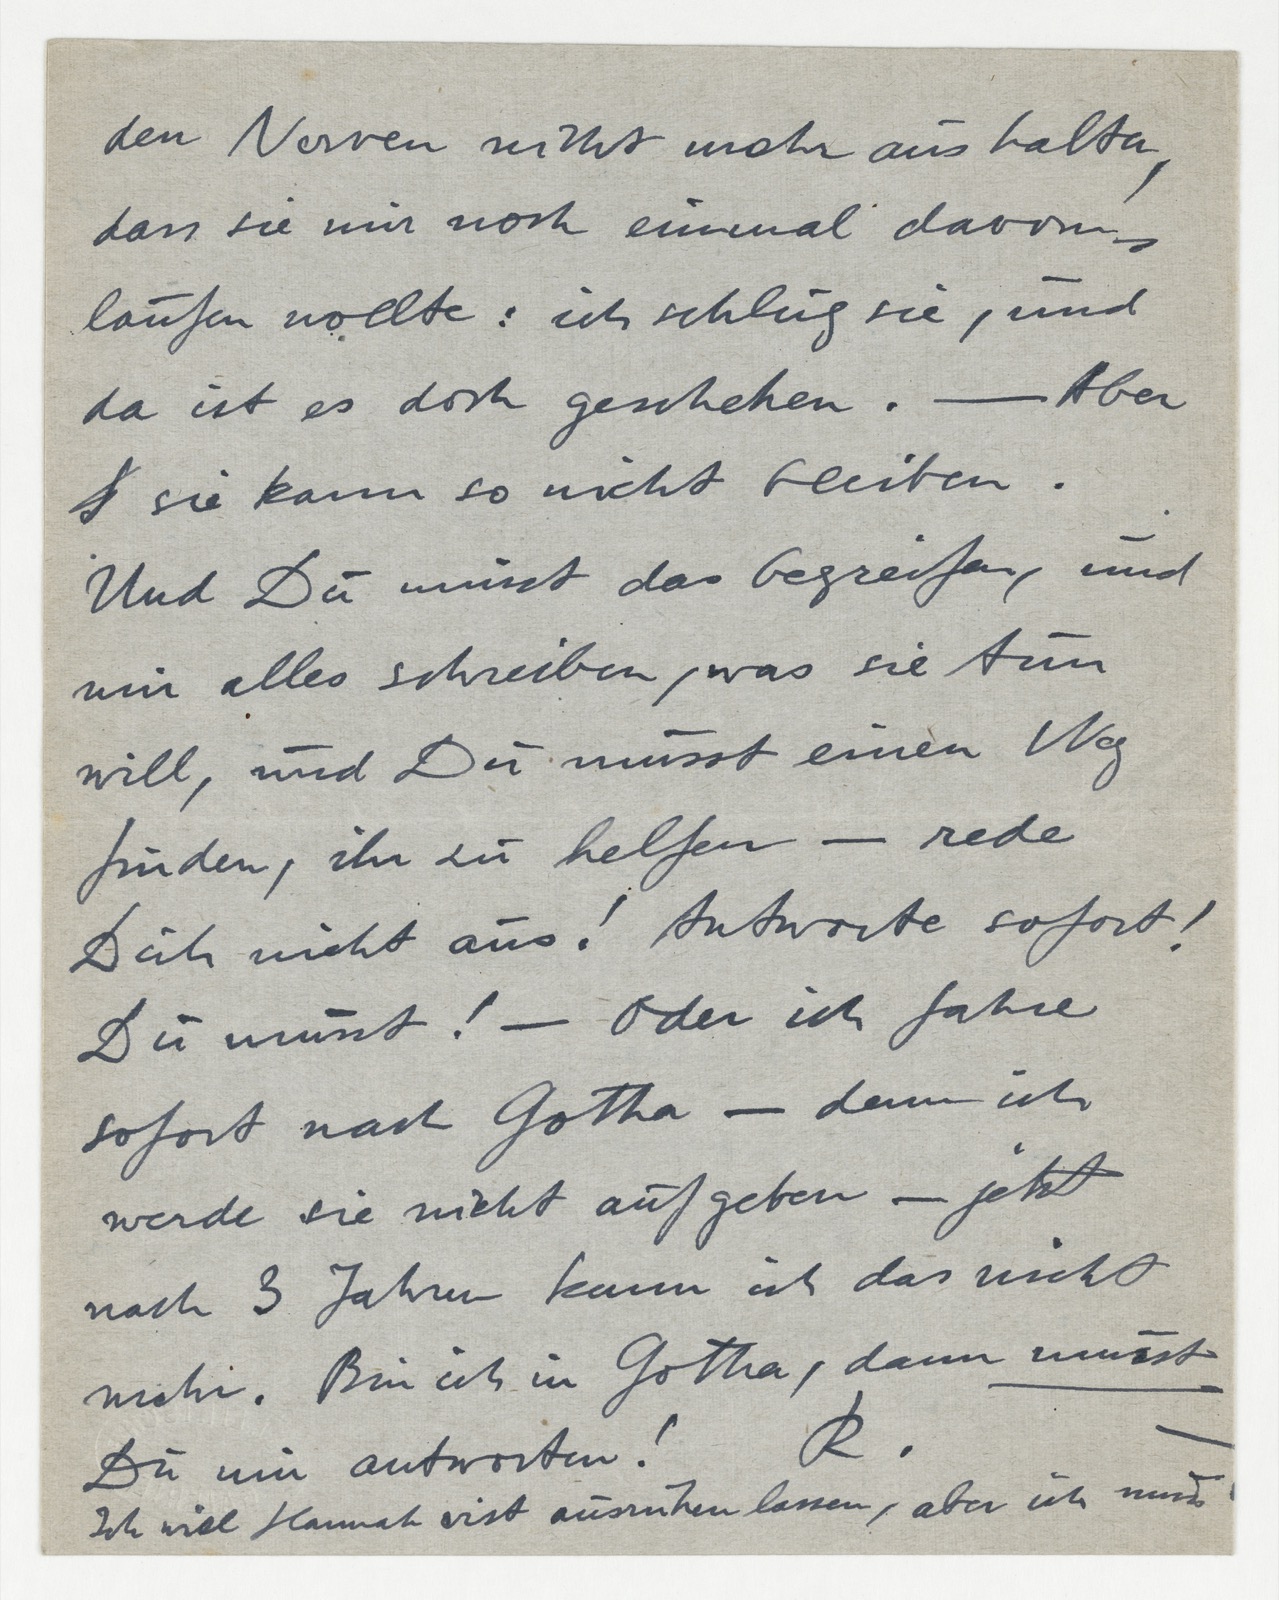 den Nerven nicht mehr aushalten,
dass sie mir noch einmal davon-
laufen wollte: ich schlug sie, und
da ist es doch geschehen. — Aber
sie kann so nicht bleiben.
Und Du musst das begreifen, und
mir alles schreiben, was sie tun
will, und Du musst einen Weg
finden, ihr zu helfen — rede
Dich nicht aus! Antworte sofort!
Du musst! — Oder ich fahre
sofort nach Gotha — denn ich
werde sie nicht aufgeben — jetzt
nach 3 Jahren kann ich das nicht
mehr. Bin ich in Gotha, dann musst
Du mir antworten! R.
Ich will Hannah erst ausruhen lassen, aber ich muss